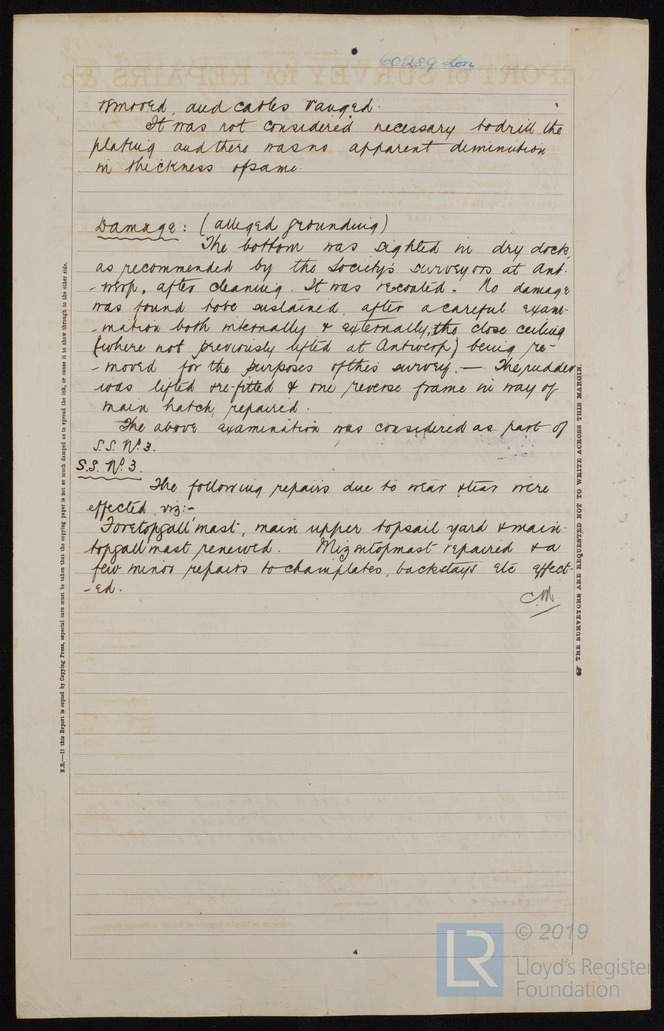 60289 Lon
removed, and cables ranged.
It was not considered necessary to drill the
plating and there was no apparent diminution
in thickness of same.
Damage: (alleged grounding)
The bottom was sighted in dry dock,
as recommended by the Society's surveyors at Ant-
-werp, after cleaning. It was recoated. No damage
was found to be sustained, after a careful exam-
-ination both internally & externally, the close ceiling
(where not previously lifted at Antwerp) being re-
-moved for the purposes of this survey. — The rudder
was lifted & re-fitted & one reverse frame in way of
main hatch, repaired.
The above examination was considered as part of
S.S. No. 3.
S.S. No. 3.
The following repairs due to wear & tear were
effected, viz:-
Foretopgall' mast, main upper topsail yard & main
topgall' mast renewed. Mizentopmast repaired & a
few minor repairs to chainplates, backstays etc effect-
-ed.
C.M.
N.B.—If this Report is copied by Copying Press, especial care must be taken that the copying paper is not so much damped as to spread the ink, or cause it to show through to the other side.
☞ THE SURVEYORS ARE REQUESTED NOT TO WRITE ACROSS THIS MARGIN.
4
LR
© 2019
Lloyd's Register
Foundation